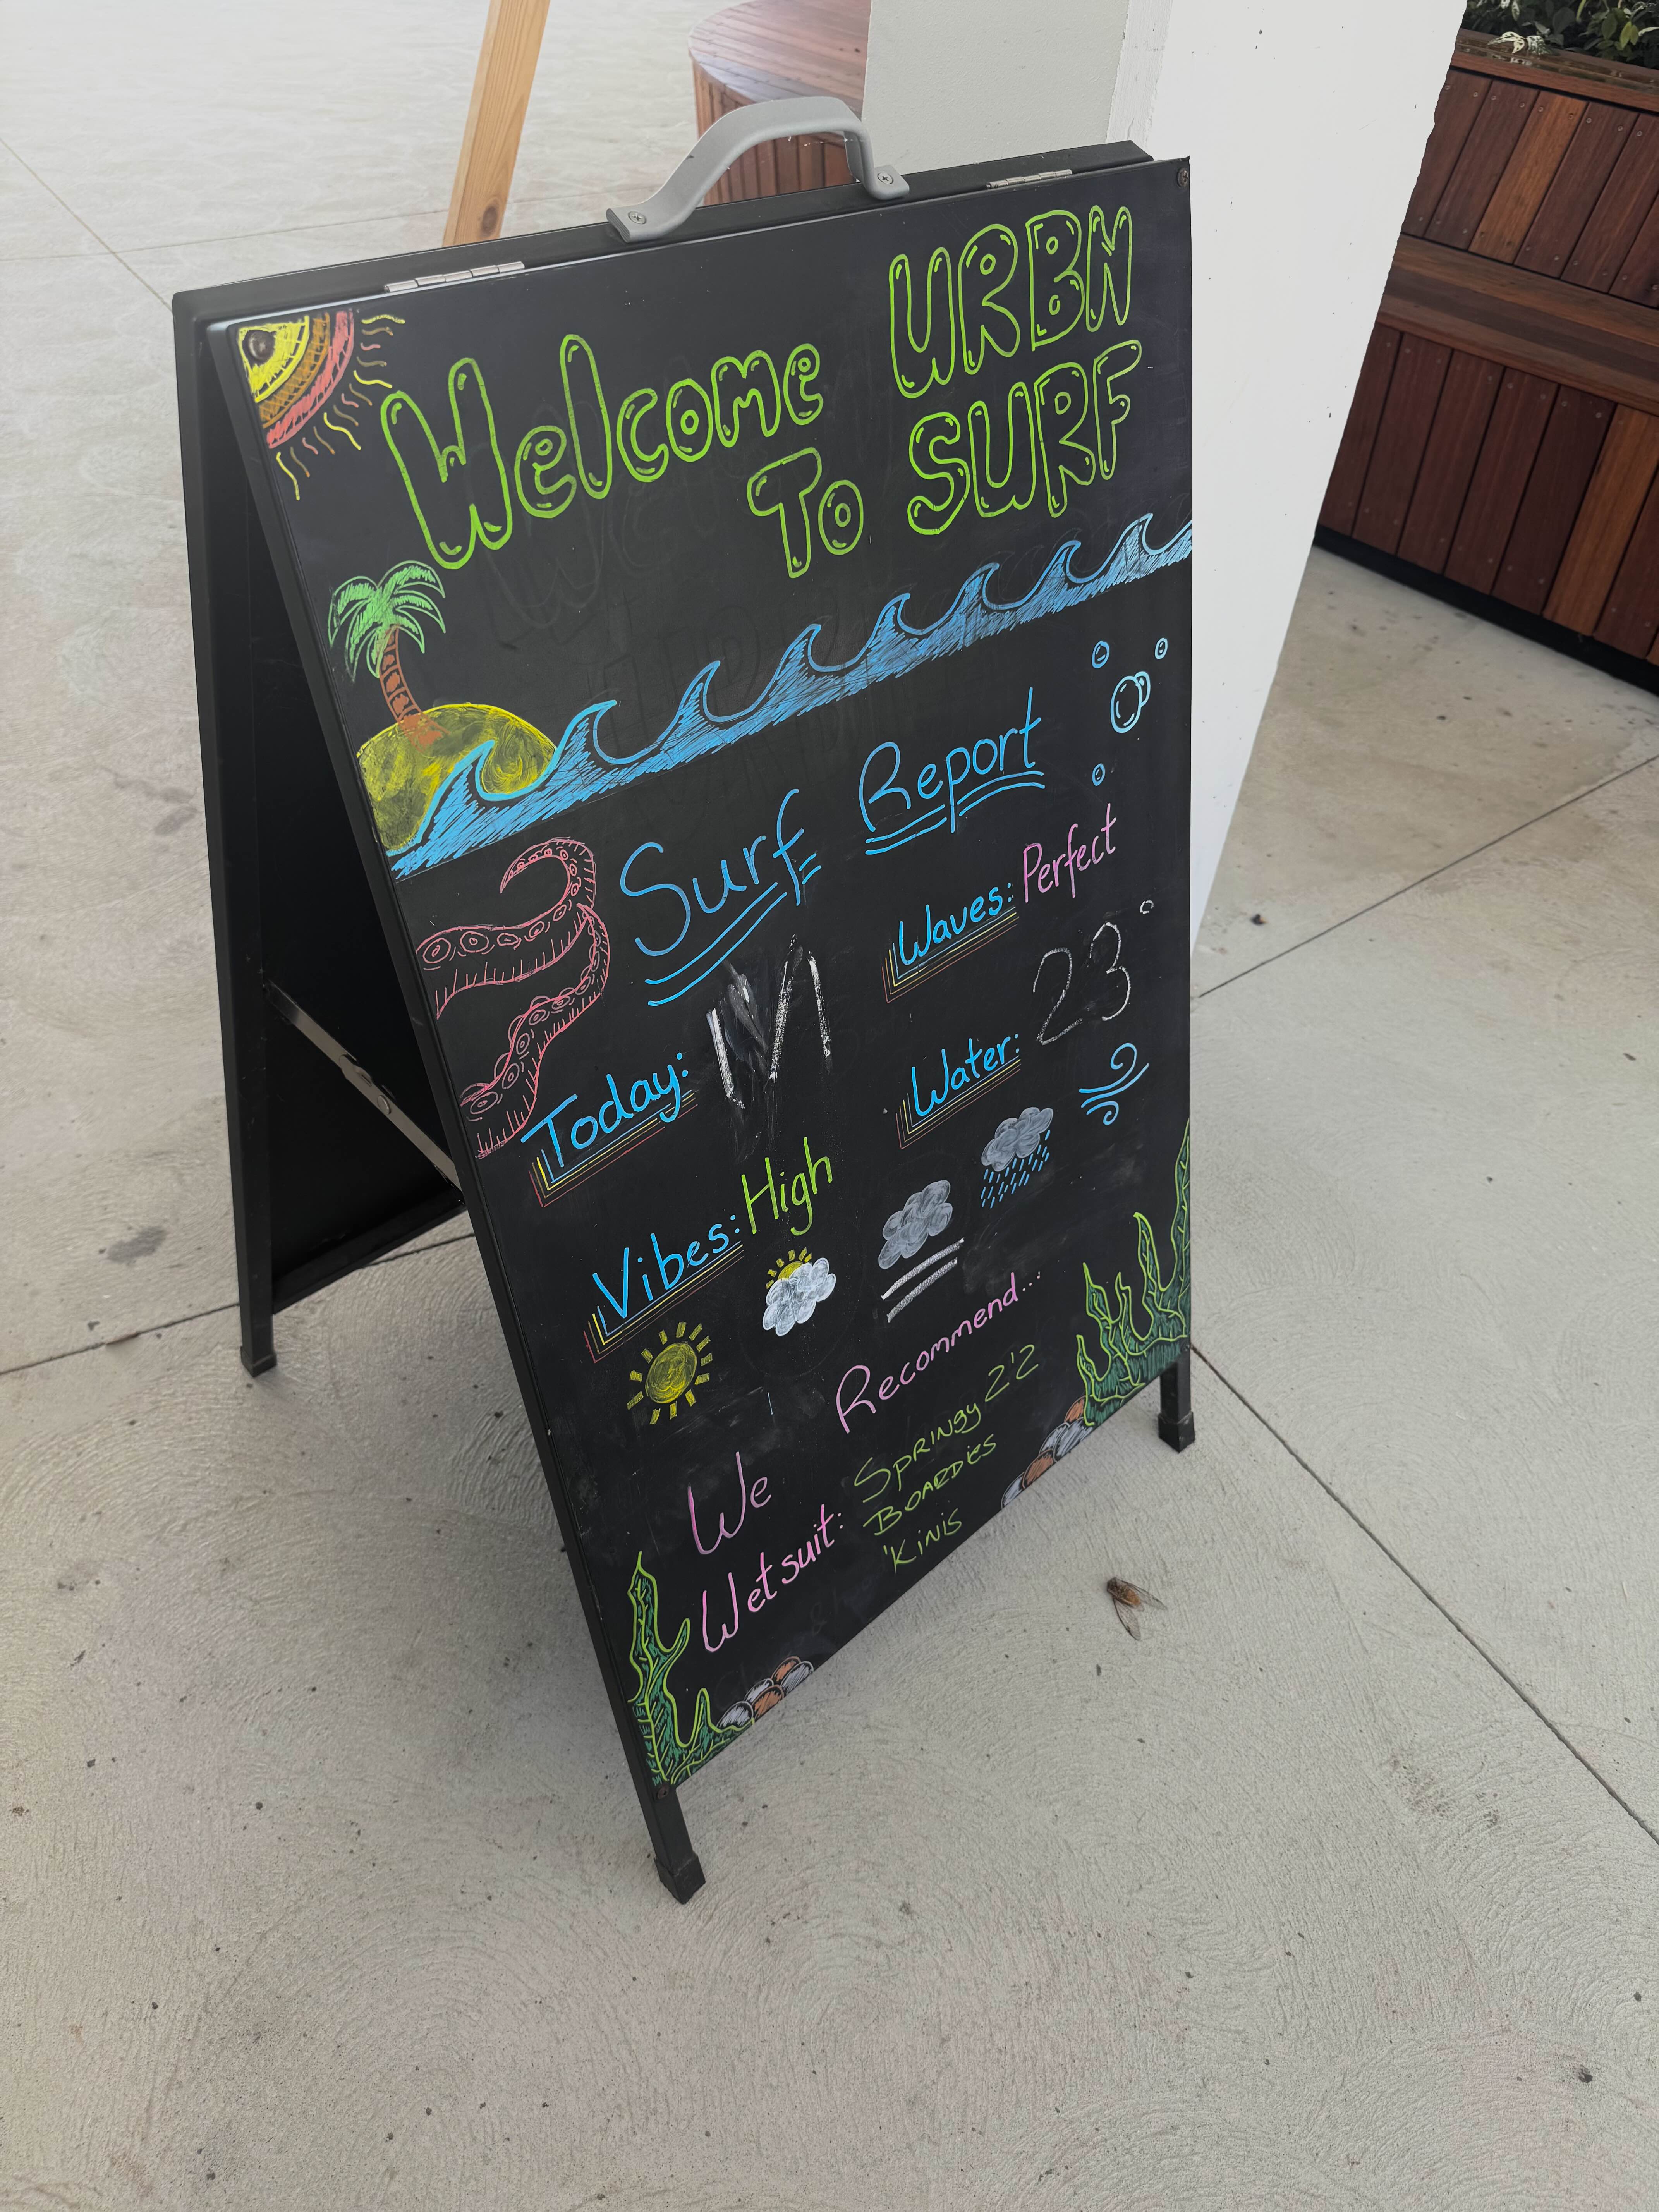 Welcome URBN
To SURF
Surf Report
Waves: Perfect
Today:
Water: 23°
Vibes: High
We Recommend...
Wetsuit: Springy 2'2
Boardies
'Kinis